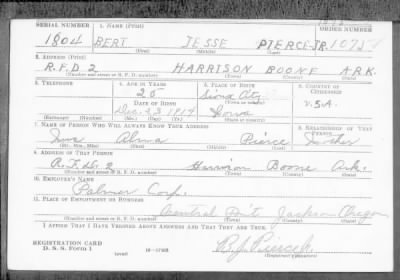 SERIAL NUMBER 1. NAME (Print) ORDER NUMBER
1804 BERT JESSE PIERCE JR.
(First) (Middle) (Last)
2. ADDRESS (Print)
R.F.D 2 HARRISON BOONE ARK.
(Number and street or R. F. D. number) (Town) (County) (State)
3. TELEPHONE 4. AGE IN YEARS 5. PLACE OF BIRTH 6. COUNTRY OF CITIZENSHIP
25 Sioux City
DATE OF BIRTH
Dec. 23 1914 Iowa U.S.A.
(Exchange) (Number) (Mo.) (Day) (Yr.) (State or country)
7. NAME OF PERSON WHO WILL ALWAYS KNOW YOUR ADDRESS 8. RELATIONSHIP OF THAT PERSON
Alma Pierce Mother
(Mr., Mrs., Miss) (First) (Middle) (Last)
9. ADDRESS OF THAT PERSON
R.F.D. 2 Harrison Boone Ark.
(Number and street or R. F. D. number) (Town) (County) (State)
10. EMPLOYER'S NAME
Palmer Corp.
11. PLACE OF EMPLOYMENT OR BUSINESS
Central Pt. Jackson Oregon
(Number and street or R. F. D. number) (Town) (County) (State)
I AFFIRM THAT I HAVE VERIFIED ABOVE ANSWERS AND THAT THEY ARE TRUE.
REGISTRATION CARD
D. S. S. Form 1
(over) 16—17105
(Registrant's signature)